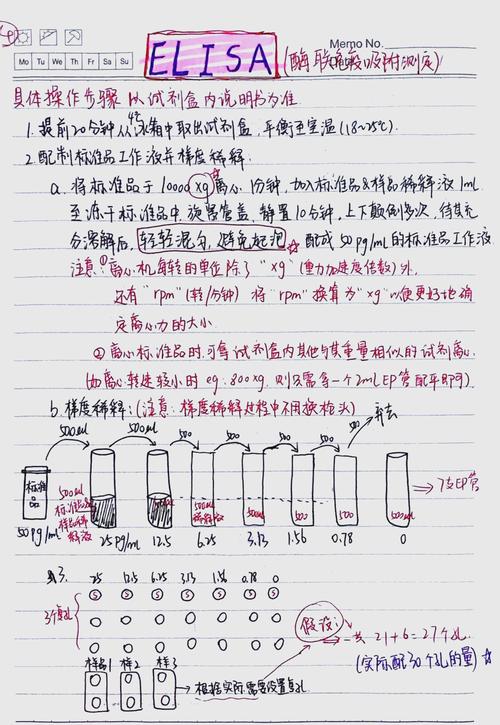 Memo No.
Mo Tu We Th Fr Sa Su
ELISA (酶联免疫吸附测定)
具体操作步骤以试剂盒内说明书为准
1. 提前20分钟从4℃冰箱中取出试剂盒,平衡至室温(18~25℃).
2. 配制标准品工作液并梯度稀释.
a. 将标准品于10000×g离心1分钟,加入标准品&样品稀释液1ml
至冻干标准品中,旋紧管盖,静置10分钟,上下颠倒多次,待其充
分溶解后,轻轻混匀,避免起泡 ☆ 配成50pg/ml的标准品工作液
注意:①离心机每转的单位除了“×g”(重力加速度倍数)外,
还有“rpm”(转/分钟) 将“rpm”换算为“×g”以便更好地确
定离心力的大小
②离心标准品时,可拿试剂盒内其他与其重量相似的试剂离心.
(如离心转速较小时eg:800×g,则只需拿一个2mlEP管配平即可)
b. 梯度稀释:(注意:梯度稀释过程中不用换枪头)
500ml 500ml 500 500 500 500 弃去
标准品
500ml
标准品&
样品稀
释液
500ml
稀释液
500
500
500
500ml
→7支EP管
50pg/ml 25pg/ml 12.5 6.25 3.13 1.56 0.78 0
3.
25 12.5 6.25 3.13 1.56 0.78 0
S S S S S S S
3个复孔
假设: 共21+6=27个孔
样品1 样2 样3
(实际配30个孔的量) ☆
→根据实际需要设置复孔